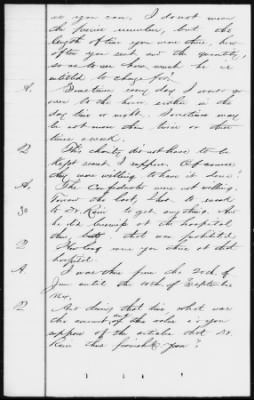 as you can. I do not mean
the precise number, but the
length of time you were there, how
often you sent out the quantity,
so as to see how much he is
entitled to charge for?
A. Sometimes every day I would go
over to the house, either in the
day time or night. Sometimes may
be not more than twice or three
times a week.
Q. This charity did not have to be
kept secret I suppose. Of course
they were willing to have it done?
A. The Confederates were not willing.
You know the last, I had to send
to Dr. to get anything. As
he did at the hospital
that was forbidden
Q. How long were you there at that
hospital.
A. I was there from the 20th of
June until the 10th of September
Q. And during that time what was
the amount and the value as you
suppose of the articles that Dr.
thus furnished you?